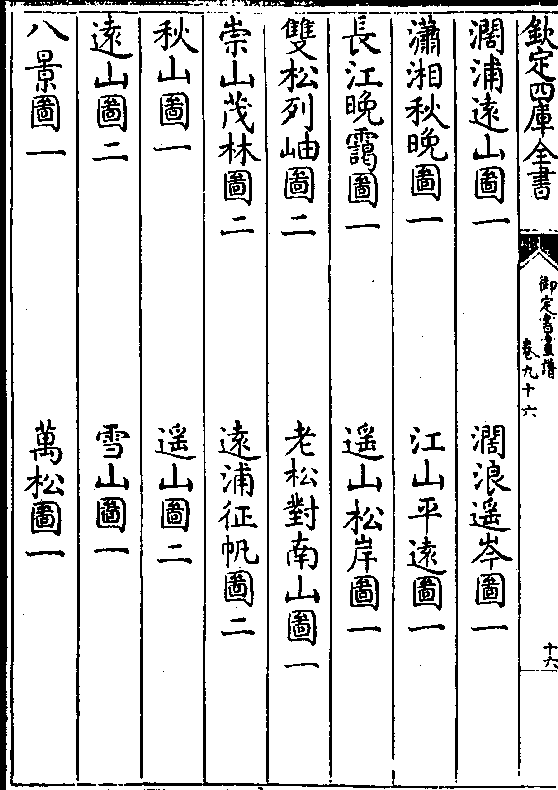 欽定四庫全書
御定書畫譜
卷九十六
十六
濶浦遠山圖一 濶浪遥岑圖一
瀟湘秋晚圖一 江山平遠圖一
長江晚靄圖一 遥山松岸圖一
雙松列岫圖二 老松對南山圖一
崇山茂林圖二 遠浦征帆圖二
秋山圖一 遥山圖二
遠山圖二 雪山圖一
八景圖一 萬松圖一